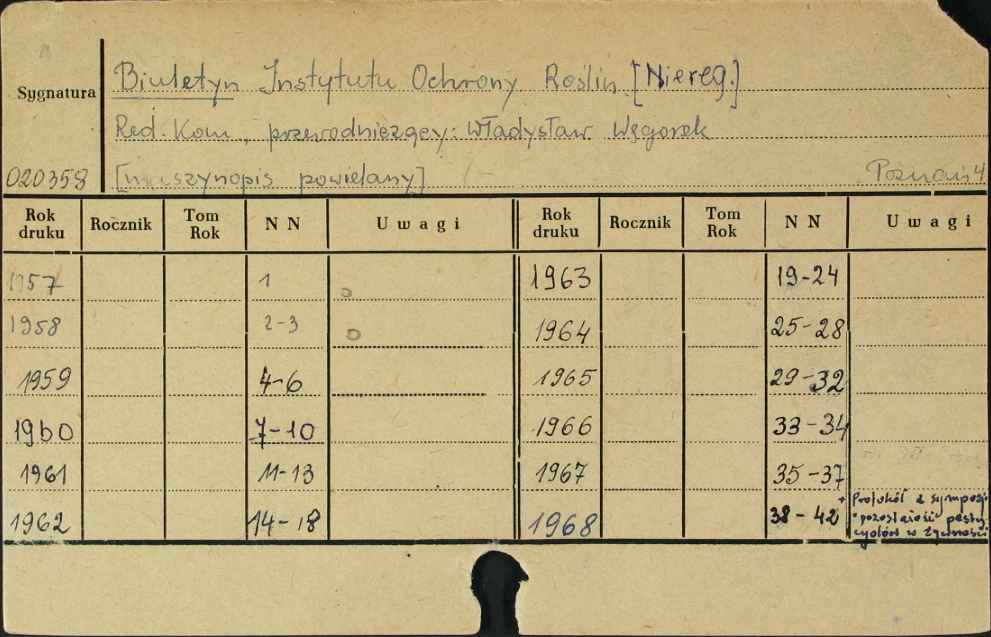 Biuletyn Instytutu Ochrony Roślin [Niereg.]
Sygnatura
Red. Kom. przewodniczący: Władysław Węgorek
020358 [maszynopis powielany] Poznań 4
Rok druku Rocznik Tom Rok NN Uwagi Rok druku Rocznik Tom Rok NN Uwagi
1957 1 1963 19-24
1958 2-3 1964 25-28
1959 4-6 1965 29-32
1960 7-10 1966 33-34
1961 11-13 1967 35-37
1962 14-18 1968 38-42 + Protokół z sympozj.
"pozostałości pesty
cydów w żywności